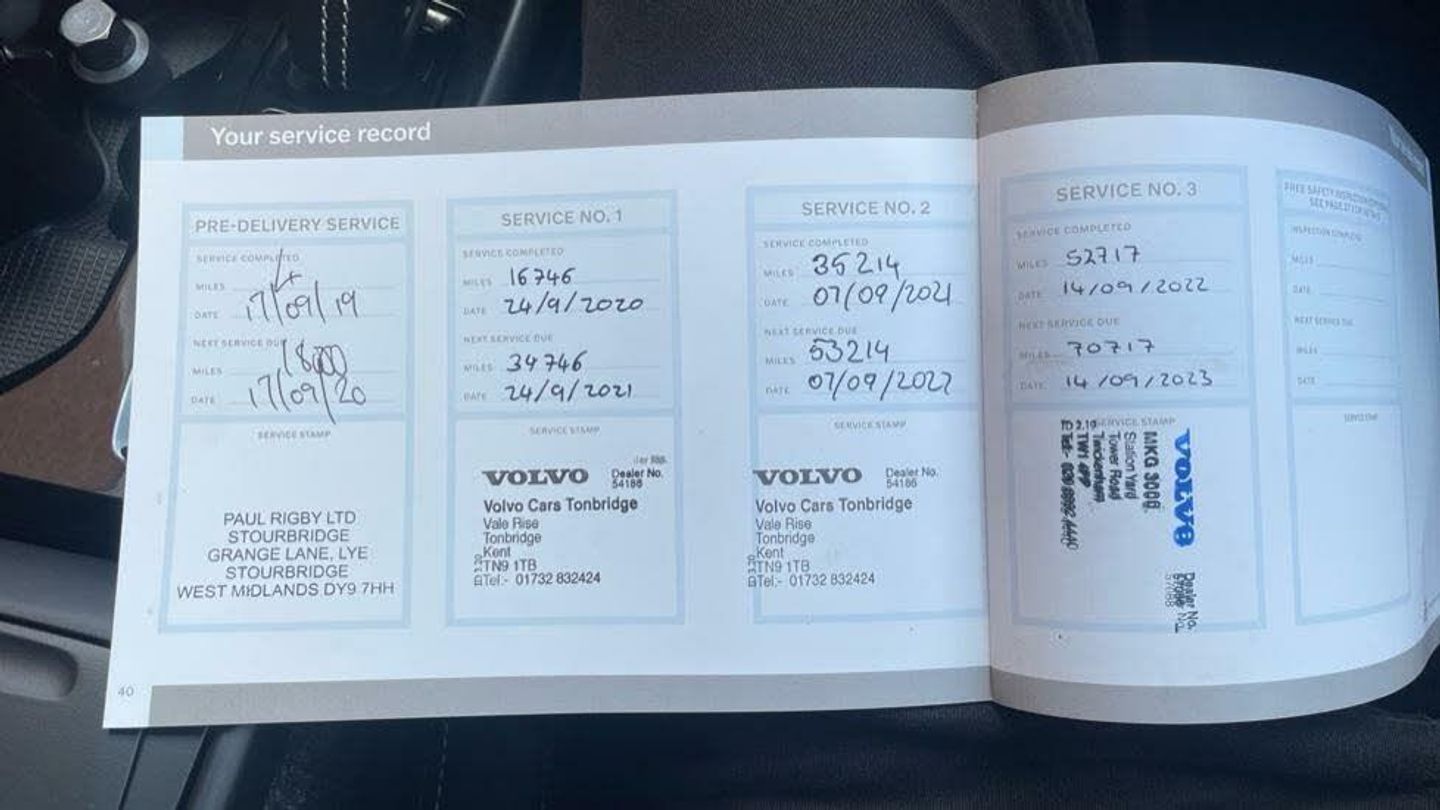 Your service record
PRE-DELIVERY SERVICE
SERVICE COMPLETED
MILES
DATE 17/09/19
NEXT SERVICE DUE
MILES 18000
DATE 17/09/20
SERVICE STAMP
PAUL RIGBY LTD
STOURBRIDGE
GRANGE LANE, LYE
STOURBRIDGE
WEST MIDLANDS DY9 7HH
SERVICE NO. 1
SERVICE COMPLETED
MILES 16746
DATE 24/9/2020
NEXT SERVICE DUE
MILES 34746
DATE 24/9/2021
SERVICE STAMP
VOLVO Dealer No.
54186
Volvo Cars Tonbridge
Vale Rise
Tonbridge
Kent
TN9 1TB
Tel:- 01732 832424
SERVICE NO. 2
SERVICE COMPLETED
MILES 35214
DATE 07/09/2021
NEXT SERVICE DUE
MILES 53214
DATE 07/09/2022
SERVICE STAMP
VOLVO Dealer No.
54186
Volvo Cars Tonbridge
Vale Rise
Tonbridge
Kent
TN9 1TB
Tel:- 01732 832424
SERVICE NO. 3
SERVICE COMPLETED
MILES 52717
DATE 14/09/2022
NEXT SERVICE DUE
MILES 70717
DATE 14/09/2023
SERVICE STAMP
VOLVO
Dealer No.
MKG 3000
Station Yard
Tower Road
Twickenham
TW1 4PP
FREE SAFETY INSPECTION
SEE PAGE
INSPECTION COMPLETED
MILES
DATE
NEXT SERVICE DUE
MILES
DATE
SERVICE STAMP
40